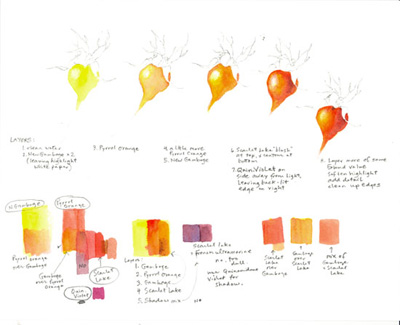 LAYERS:
1. clean water
2. New Gamboge x 2
(leaving highlight
white paper)
3. Pyrrol Orange
4. a little more
Pyrrol Orange
5. New Gamboge
6. Scarlet Lake "blush"
at top, & bottom at
bottom.
7. Quin Violet on
side away from light,
leaving back-lit
edge on right
8. Layer more of same
toward value
Soften highlight
add detail
clean up edges
N. Gamboge
Pyrrol
Orange
Pyrrol orange
over Gamboge
Gamboge
over Pyrrol
Orange
Scarlet
Lake
Quin
Violet
Layers:
1. Gamboge
2. Pyrrol Orange
3. Gamboge
4. Scarlet Lake
5. Shadow mix
Scarlet Lake
+ French ultramarine
no. too
dull.
use Quinacridone
Violet for
Shadow.
Scarlet
Lake
over
Gamboge
Gamboge
over
Scarlet
Lake
mix of
Gamboge
+ Scarlet
Lake